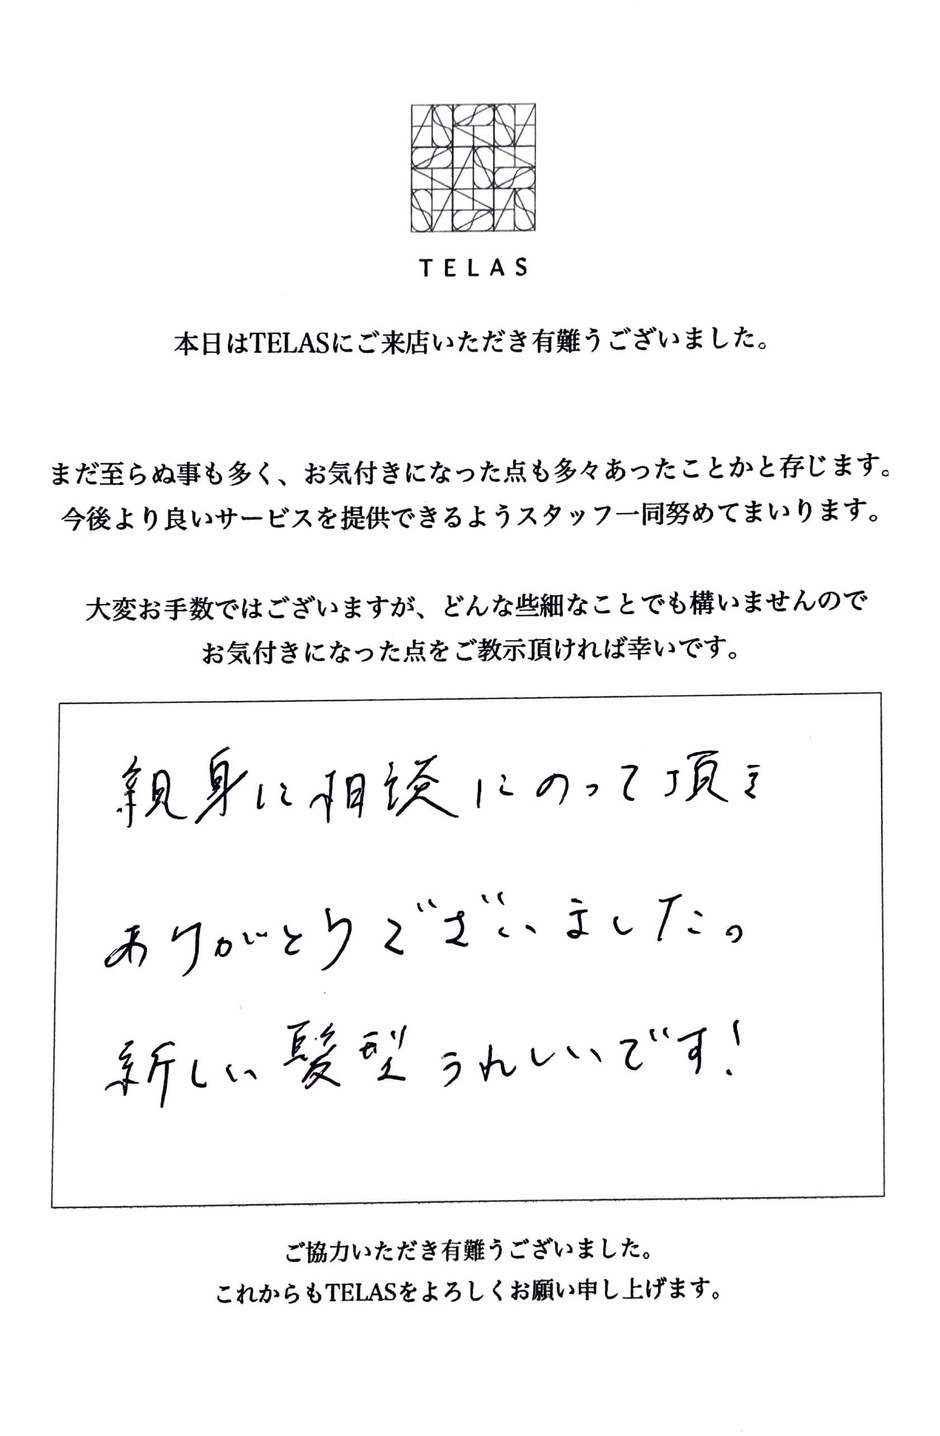 TELAS
本日はTELASにご来店いただき有難うございました。
まだ至らぬ事も多く、お気付きになった点も多々あったことかと存じます。
今後より良いサービスを提供できるようスタッフ一同努めてまいります。
大変お手数ではございますが、どんな些細なことでも構いませんので
お気付きになった点をご教示頂ければ幸いです。
親身に相談にのって頂き
ありがとうございました。
新しい髪型うれしいです!
ご協力いただき有難うございました。
これからもTELASをよろしくお願い申し上げます。